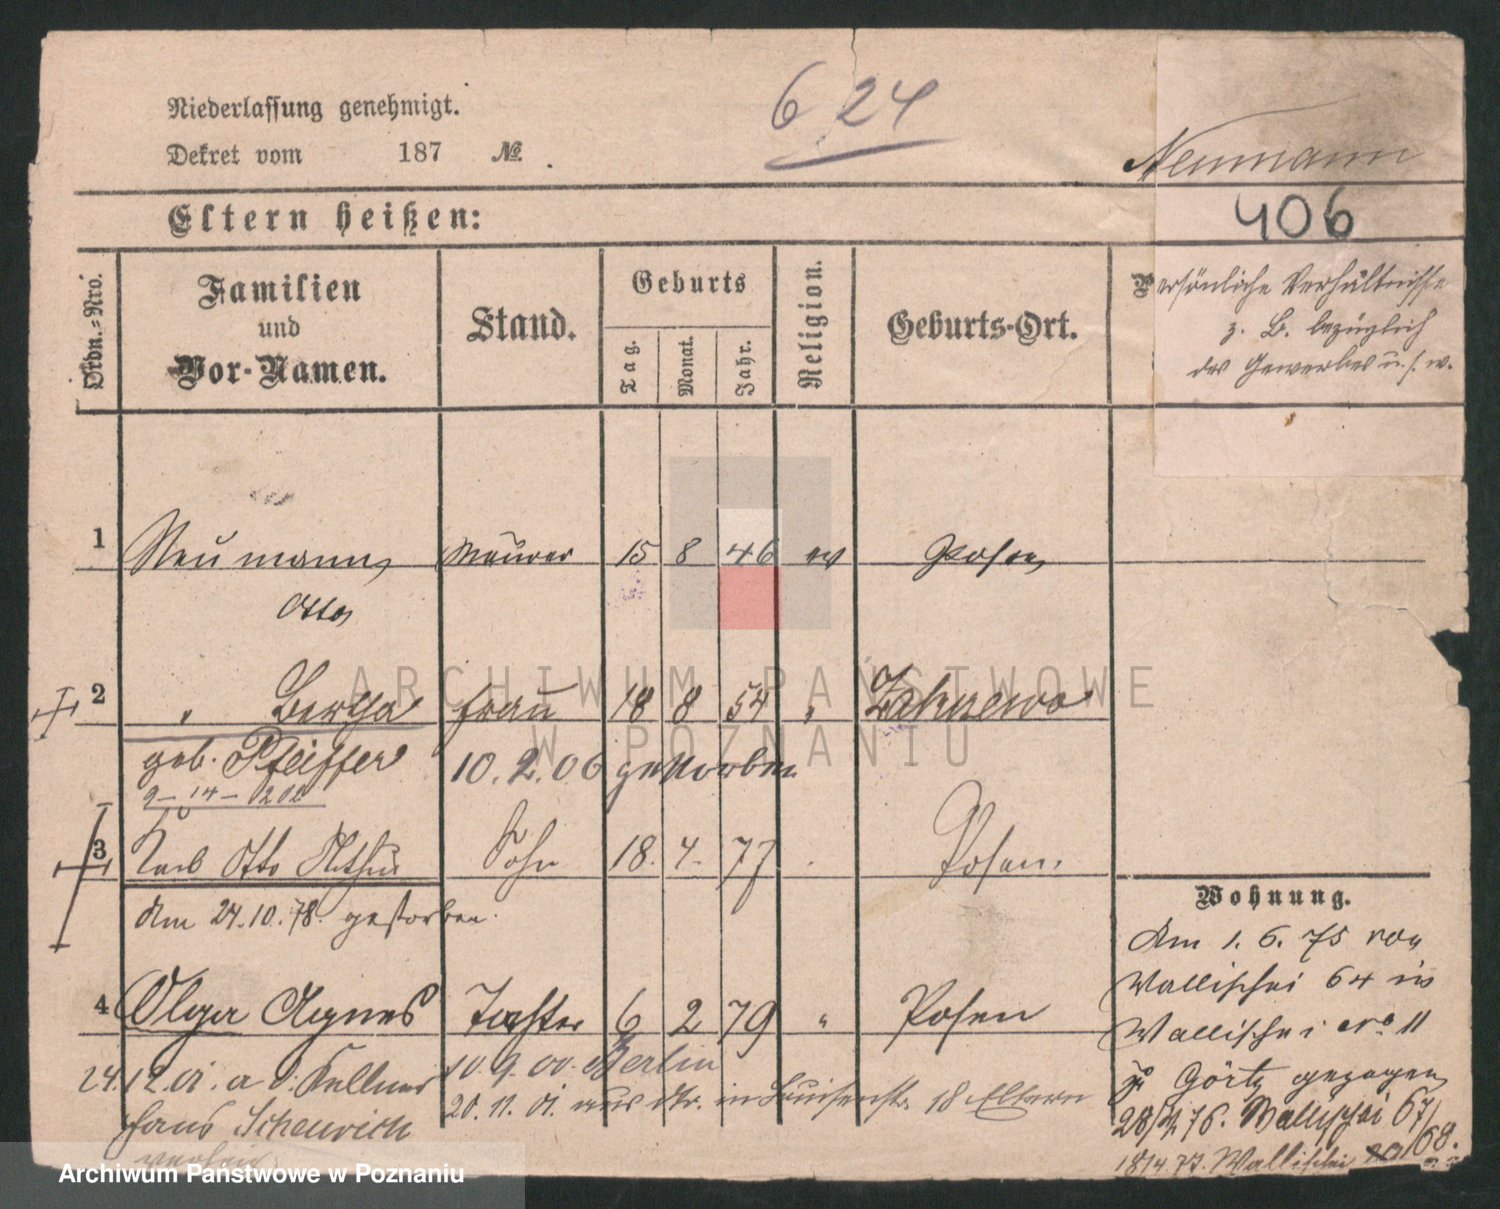 Niederlassung genehmigt.
Dekret vom 187 No.
624
Neumann
406
Eltern heißen:
Ordn.-Nro.
Familien
und
Vor-Namen.
Stand.
Geburts
Tag.
Monat.
Jahr.
Religion.
Geburts-Ort.
Persönliche Verhältnisse
z. B. bezüglich
des Gewerbes u. s. w.
1 Neumann Maurer 15 8 46 ev Posen
Otto
2 " Bertha Frau 18 8 54 " Zakrzewo
geb. Pfeiffer 10.2.06 gestorben
3 Karl Otto Arthur Sohn 18. 4. 77 Posen.
Am 24.10.78 gestorben.
4 Olga Agnes Tochter 6 2 79 " Posen
10.9.00. Berlin
24.12.01. a d. Kellner
20.11.01. aus in Luisenstr. 18 Eltern
Hans
Wohnung.
Am 1. 6. 75 von
Wallischei 64 in
Wallischei No 11
zu Görtz gezogen
28/4.76. Wallischei 67/68.
18/4.77. Wallischei
ARCHIWUM PAŃSTWOWE
W POZNANIU
Archiwum Państwowe w Poznaniu